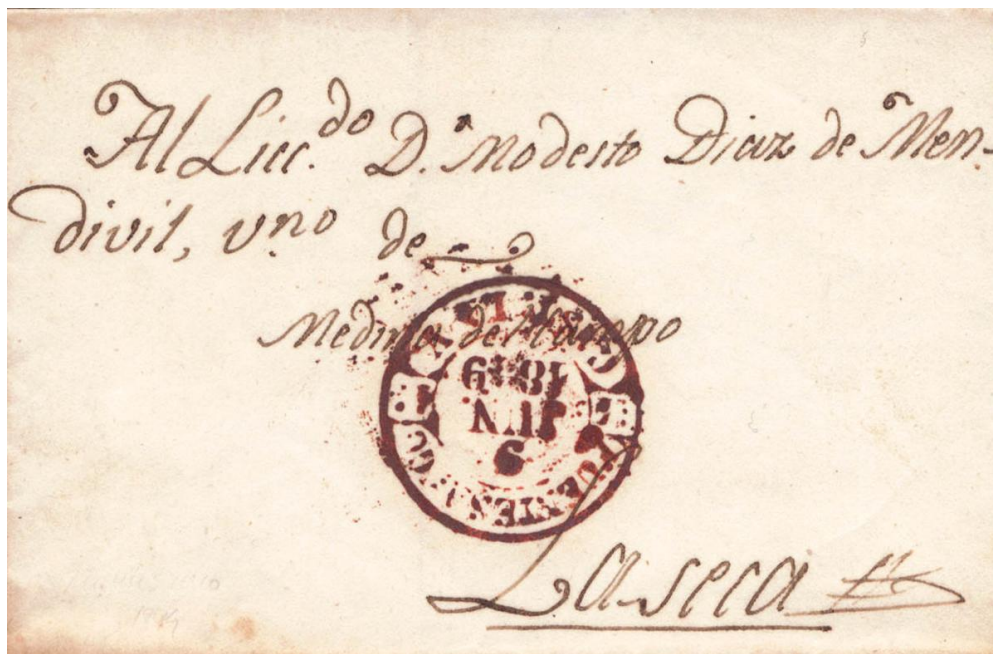 Al Licc.do D.n Modesto Diaz de Men-
divil, v.no de
Medina del Campo
6 JUN 1849
La seca